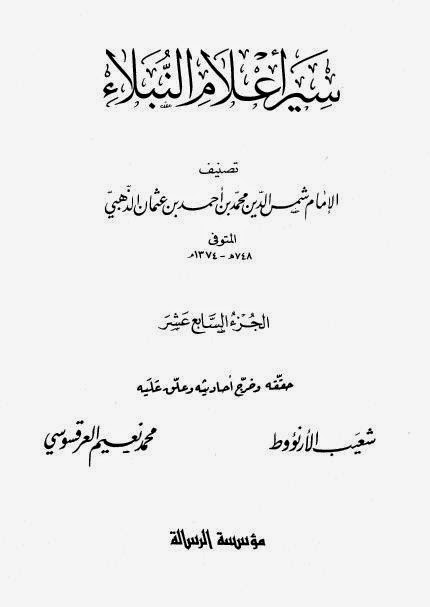 سير أعلام النبلاء
تصنيف
الإمام شمس الدين محمد بن أحمد بن عثمان الذهبي
المتوفى
٧٤٨ھ - ١٣٧٤م
الجزء السابع عشر
حققه وخرج أحاديثه وعلق عليه
شعيب الأرنؤوط محمد نعيم العرقسوسي
مؤسسة الرسالة